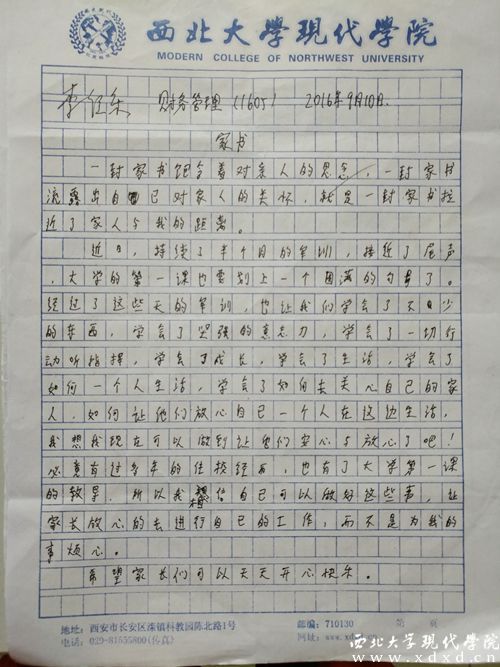 西北大学现代学院
MODERN COLLEGE OF NORTHWEST UNIVERSITY
财务管理（1605） 2016年9月10日.
家书
一封家书饱含着对亲人的思念，一封家书
流露出自己对家人的关怀，就是一封家书拉
近了家人与我的距离。
近日，持续了半个月的军训，接近了尾声
，大学的第一课也要划上一个圆满的句号了。
经过了这些天的军训，也让我们学会了不少
的东西，学会了坚强的意志力，学会了一切行
动听指挥，学会了成长，学会了生活，学会了
如何一个人生活，学会了如何去关心自己的家
人，如何让他们放心自己一个人在这边生活，
我想我现在可以做到让他们安心与放心了吧！
必竟有过多年的住校经历，也有了大学第一课
的教导，所以我相信自己可以做好这些事，让
家长放心的去进行自己的工作，而不是为我的
事烦心。
希望家长们可以天天开心快乐。
地址：西安市长安区滦镇科教园陈北路1号 邮编：710130 第 页
电话：029-81555800(传真) 网址：www.xdxd.cn
西北大学现代学院
www.xdxd.cn